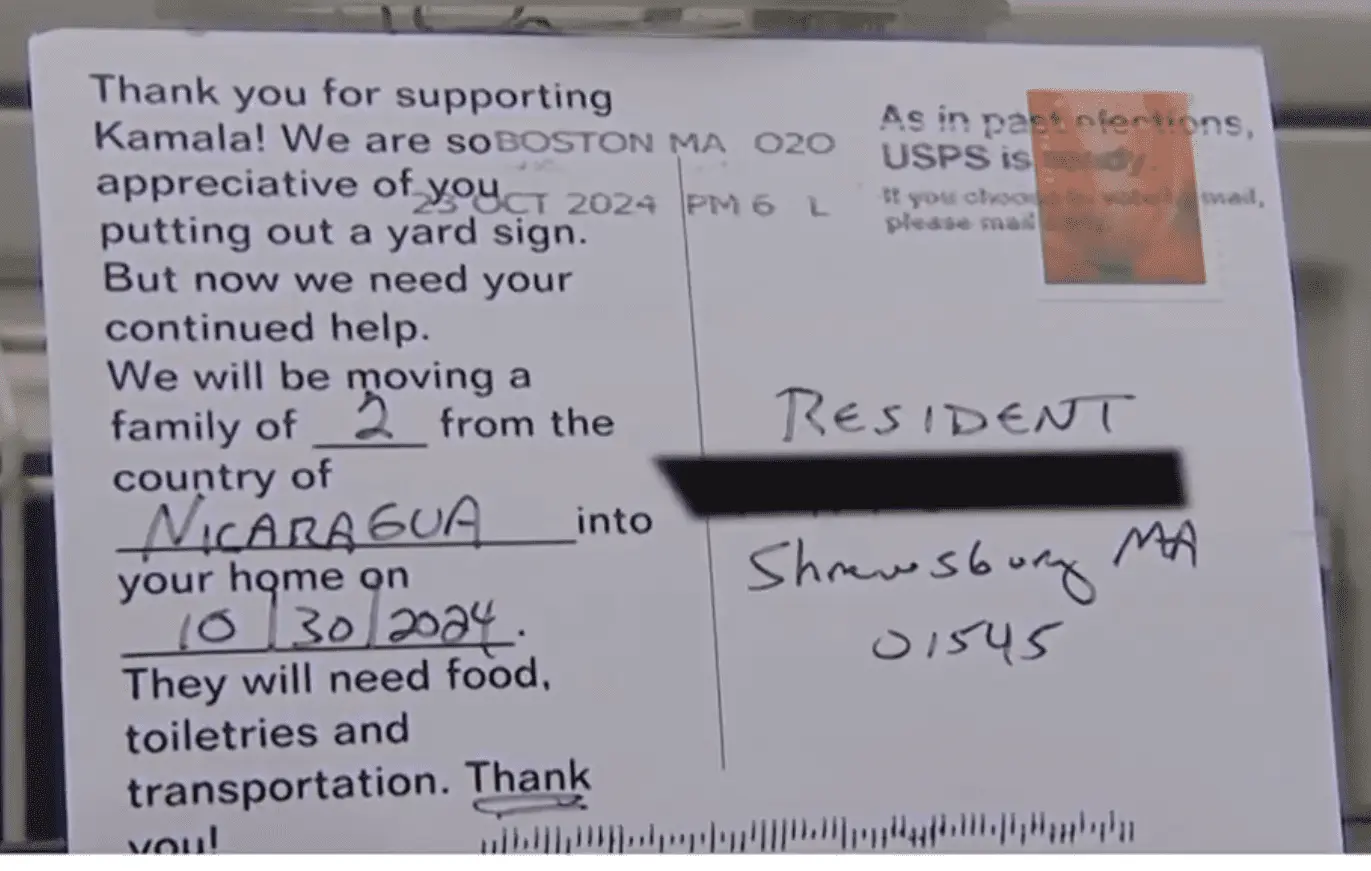 Thank you for supporting
Kamala! We are so
appreciative of you
putting out a yard sign.
But now we need your
continued help.
We will be moving a
family of 2 from the
country of
NICARAGUA into
your home on
10/30/2024.
They will need food,
toiletries and
transportation. Thank
you!
BOSTON MA 020
23 OCT 2024 PM 6 L
As in past elections,
USPS is ready.
If you choose to vote by mail,
please mail
RESIDENT
Shrewsbury MA
01545